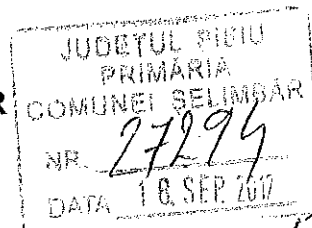 JUDEŢUL SIBIU
PRIMĂRIA
R COMUNEI ŞELIMBĂR
NR. 27294
DATA 18. SEP. 2017